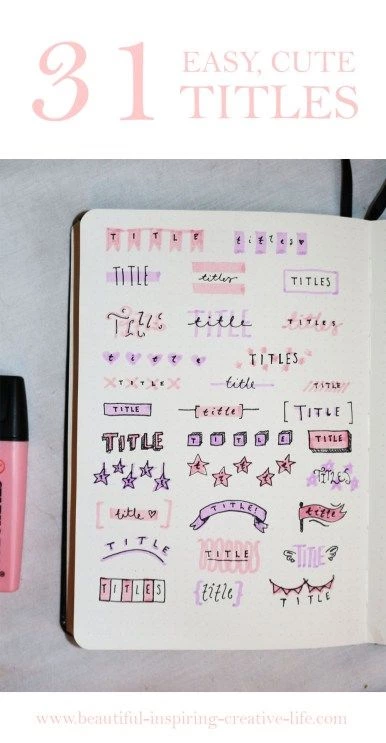 31 EASY, CUTE
TITLES
TITLE titles♥
TITLE titles TITLES
TITLE title TITLES
title TITLES
TITLE title TITLE
TITLE [title] [TITLE]
TITLE TITLE TITLE
title title TITLES
[title ♡] TITLES title
TITLE TITLE TITLE
TITLES {title} TITLE
www.beautiful-inspiring-creative-life.com